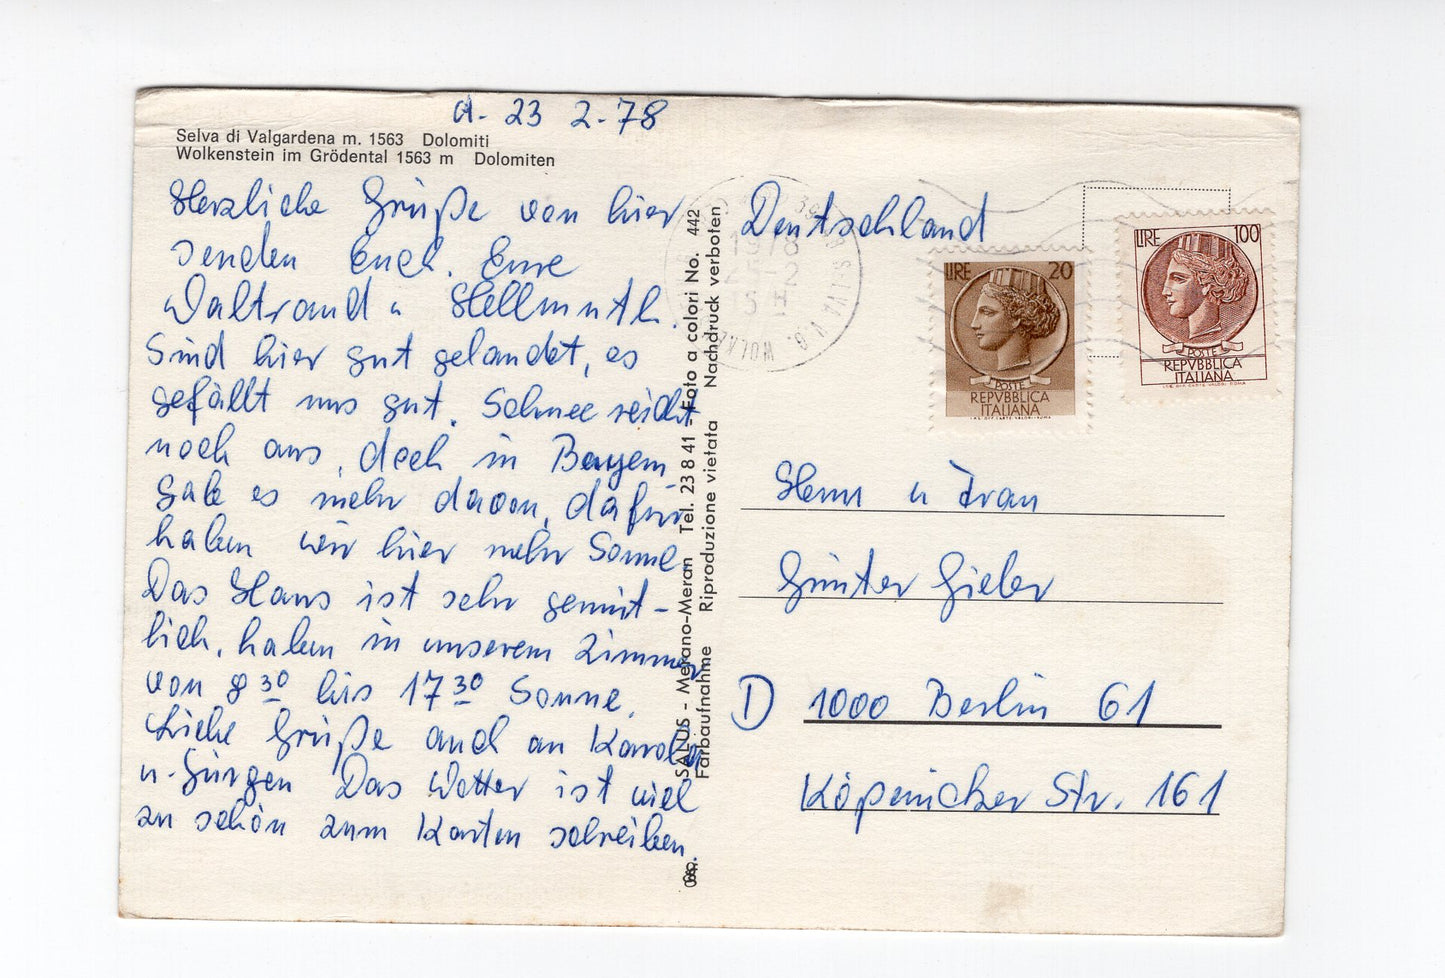 d. 23 2.78
Selva di Valgardena m. 1563 Dolomiti
Wolkenstein im Grödental 1563 m Dolomiten
Herzliche Grüße von hier
senden Euch. Eure
Waltraud u Hellmuth.
Sind hier gut gelandet, es
gefällt uns gut. Schnee reicht
noch aus, doch in Bayern
gab es mehr davon, dafür
haben wir hier mehr Sonne.
Das Haus ist sehr gemüt-
lich, haben in unserem Zimmer
von 8 30 bis 17 30 Sonne.
Liebe Grüße auch an Karola
u. Jürgen Das Wetter ist viel
zu schön zum Karten schreiben.
SALUS - Merano-Meran Tel. 23 8 41 - Foto a colori No. 442
Farbaufnahme Riproduzione vietata Nachdruck verboten
Dep.
1978
15 H
SELVA V.G.
Deutschland
LIRE 20
POSTE
REPVBBLICA
ITALIANA
LIRE 100
POSTE
REPVBBLICA
ITALIANA
Herrn u Frau
Günter Gieler
D 1000 Berlin 61
Köpenicker Str. 161